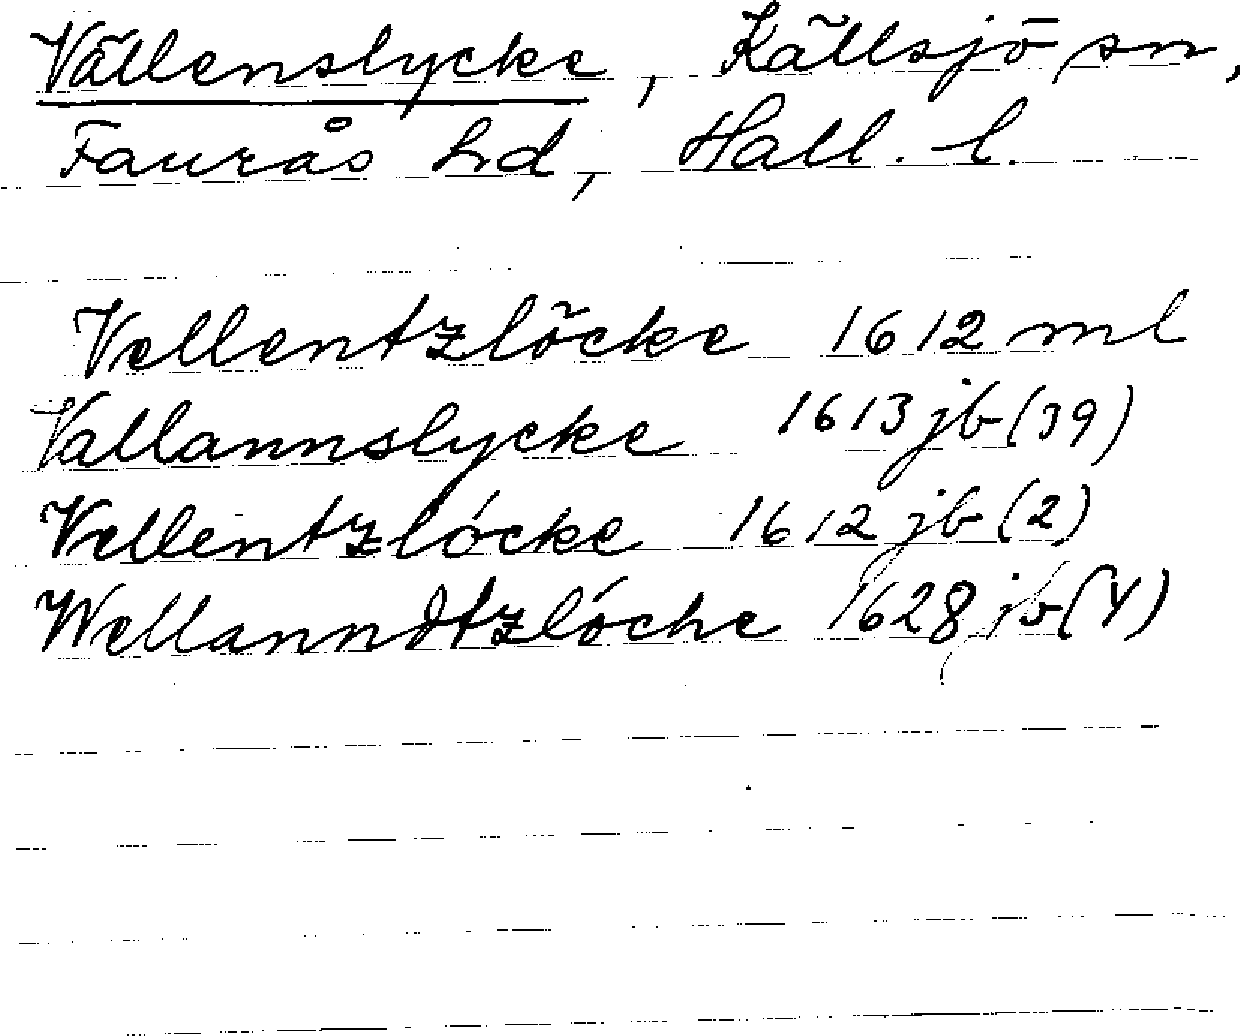 Vällenslycke, Källsjö sn,
Faurås hd, Hall. l.
Vellentzlöcke 1612 ml
Vallannslycke 1613 jb (39)
Vellentzlócke 1612 jb (2)
Wellanndtzlócke 1628 jb (4)